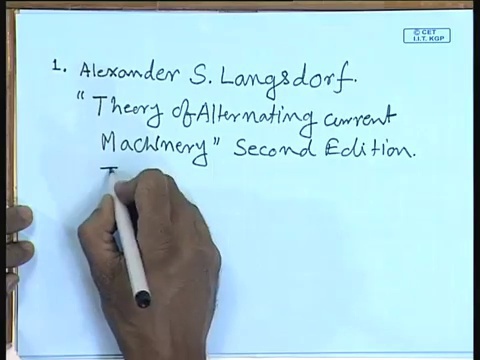 © CET
I.I.T. KGP
1. Alexander S. Langsdorf.
"Theory of Alternating current
Machinery" Second Edition.
T